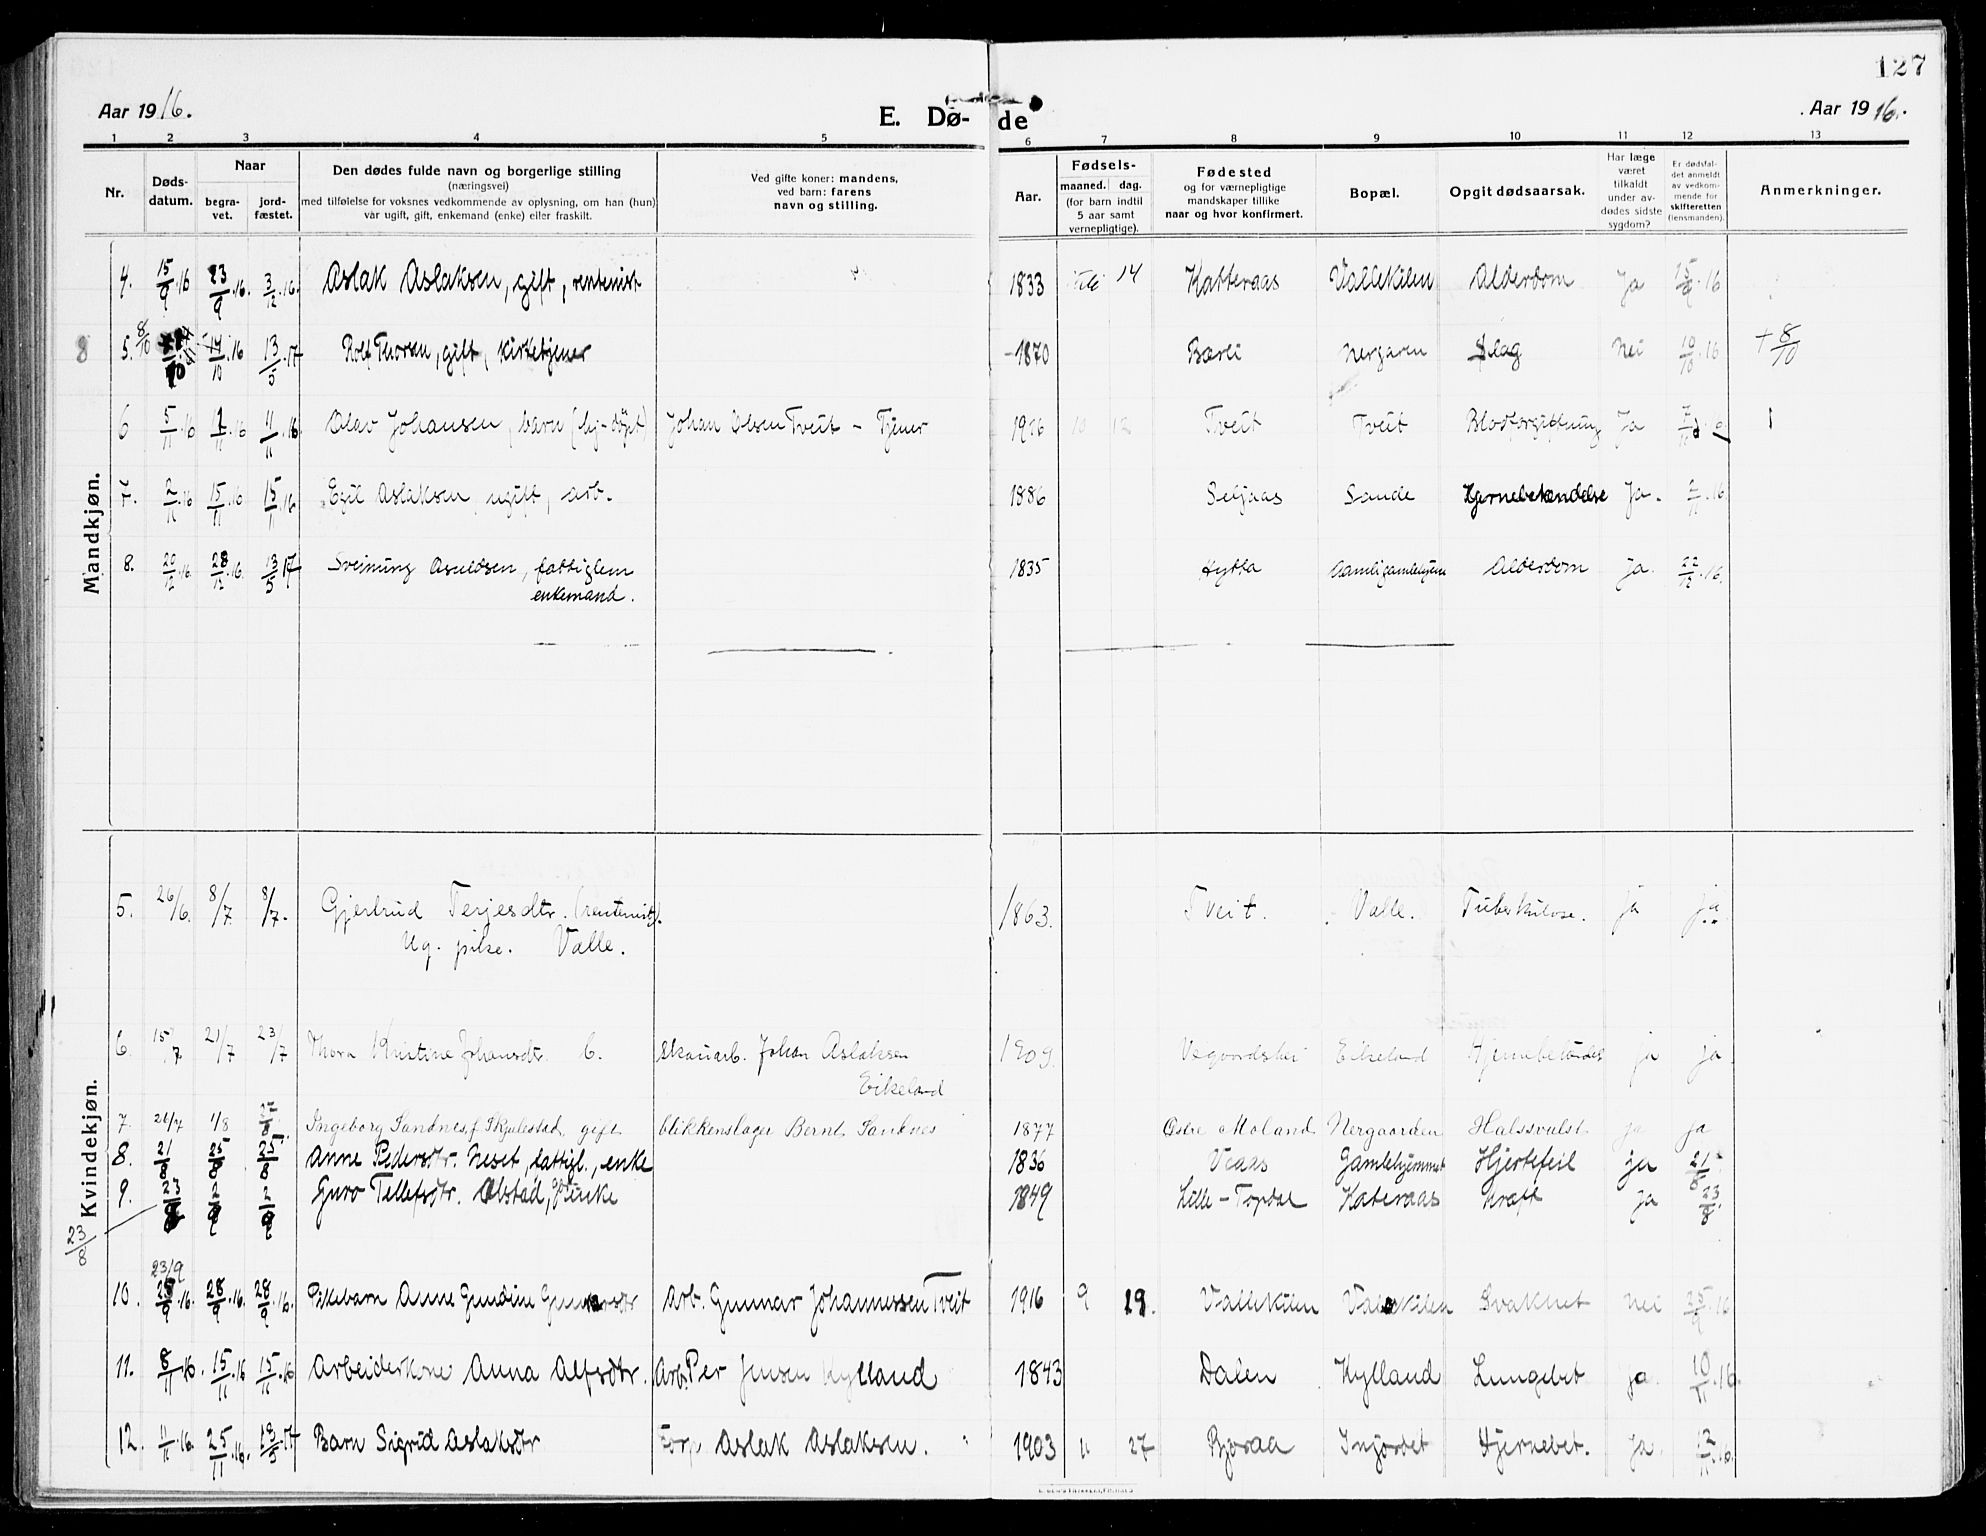 127
Aar 1916.
E. Dø- de
Aar 1916.
1 2 3 4 5 6 7 8 9 10 11 12 13
Nr.
Døds-datum.
Naar
begra-vet.
jord-fæstet.
Den dødes fulde navn og borgerlige stilling
(næringsvei)
med tilføielse for voksnes vedkommende av oplysning, om han (hun)
var ugift, gift, enkemand (enke) eller fraskilt.
Ved gifte koner: mandens,
ved barn: farens
navn og stilling.
Aar.
Fødsels-
maaned. dag.
(for barn indtil
5 aar samt
vernepligtige).
Fødested
og for værnepligtige
mandskaper tillike
naar og hvor konfirmert.
Bopæl.
Opgit dødsaarsak.
Har læge
været
tilkaldt
under av-
dødes sidste
sygdom?
Er dødsfal-
det anmeldt
av vedkom-
mende for
skifteretten
(lensmanden).
Anmerkninger.
Mandkjøn.
4. 15/9.16 23/9.16. 3/12.16. Aslak Aslaksen, gift, rentenist 1833 14 Katteraas Vallekilen Alderdom Ja 15/9.16
8 5. 8/10 14/10.16 13/5.17 Rolf Thorsen, gift, kirketjener 1870 Bærli Nergaren Slag Nei 10/10.16 + 8/10
6 5/11.16 11/11.16 Olav Johansen, barn (hj-døpt) Johan Olsen Tveit - Tjener 1916 10 12 Tveit Tveit Blodforgiftning Ja
7. 2/11.16 15/11.16 15/11.16 Egil Aslaksen ugift, arb. 1886 Seljaas Sande Hjernebetændelse Ja.
8. 20/12.16. 28/12.16. 13/5.17 Sveinung Asuldsen, fattiglem
enkemand. 1835 Hytta Aamli gamlehjem Alderdom ja. 22/12.16.
Kvindekjøn.
5. 26/6. 8/7. 8/7. Gjertrud Terjesdtr. (rentenist). 1863. Tveit. Valle. Tuberkulose. ja ja
Ug. pike. Valle.
6. 15/7 21/7 23/7 Thora Kristine Johansdtr. Skauarb. Johan Aslaksen 1909. Vegaardshei Eikeland ja ja
Eikeland
7. 26/7 1/8 Ingeborg Sandnes, f. Skjulestad, gift blikkenslager Bernt Sandnes 1877 Østre Moland Nergaarden Halssvulst ja ja
8. 21/8 25/8 25/8 Anne Pedersdtr. Neset, fattigl., enke 1836 Vraas Gamlehjemmet Hjertefeil ja 21/8
9. Guro Tellefsdtr. Ølstad, enke 1849 Lille-Topdal Kateraas Kræft ja 23/8
23/8
10. 23/9 28/9.16. 28/9.16. Pikebarn Anne Gundine Gunnarsdtr Arb. Gunnar Johannessen Tveit 1916 9 19. Vallekilen Vallekilen Svakhet Nei 25/9.16
11. 8/11.16. 15/11.16 15/11.16 Arbeiderkone Anna Alfsdtr. Arb. Per Jensen Hylland 1843 Dalen Hylland Lungebet. ja. 10/11.16.
12. 11/11.16. 25/11.16. 13/5.17 Barn Sigrid Aslaksdtr Aslak Aslaksen. 1903 11 27 Bjoraa Injordet Hjernebet. Ja. 12/11.16.